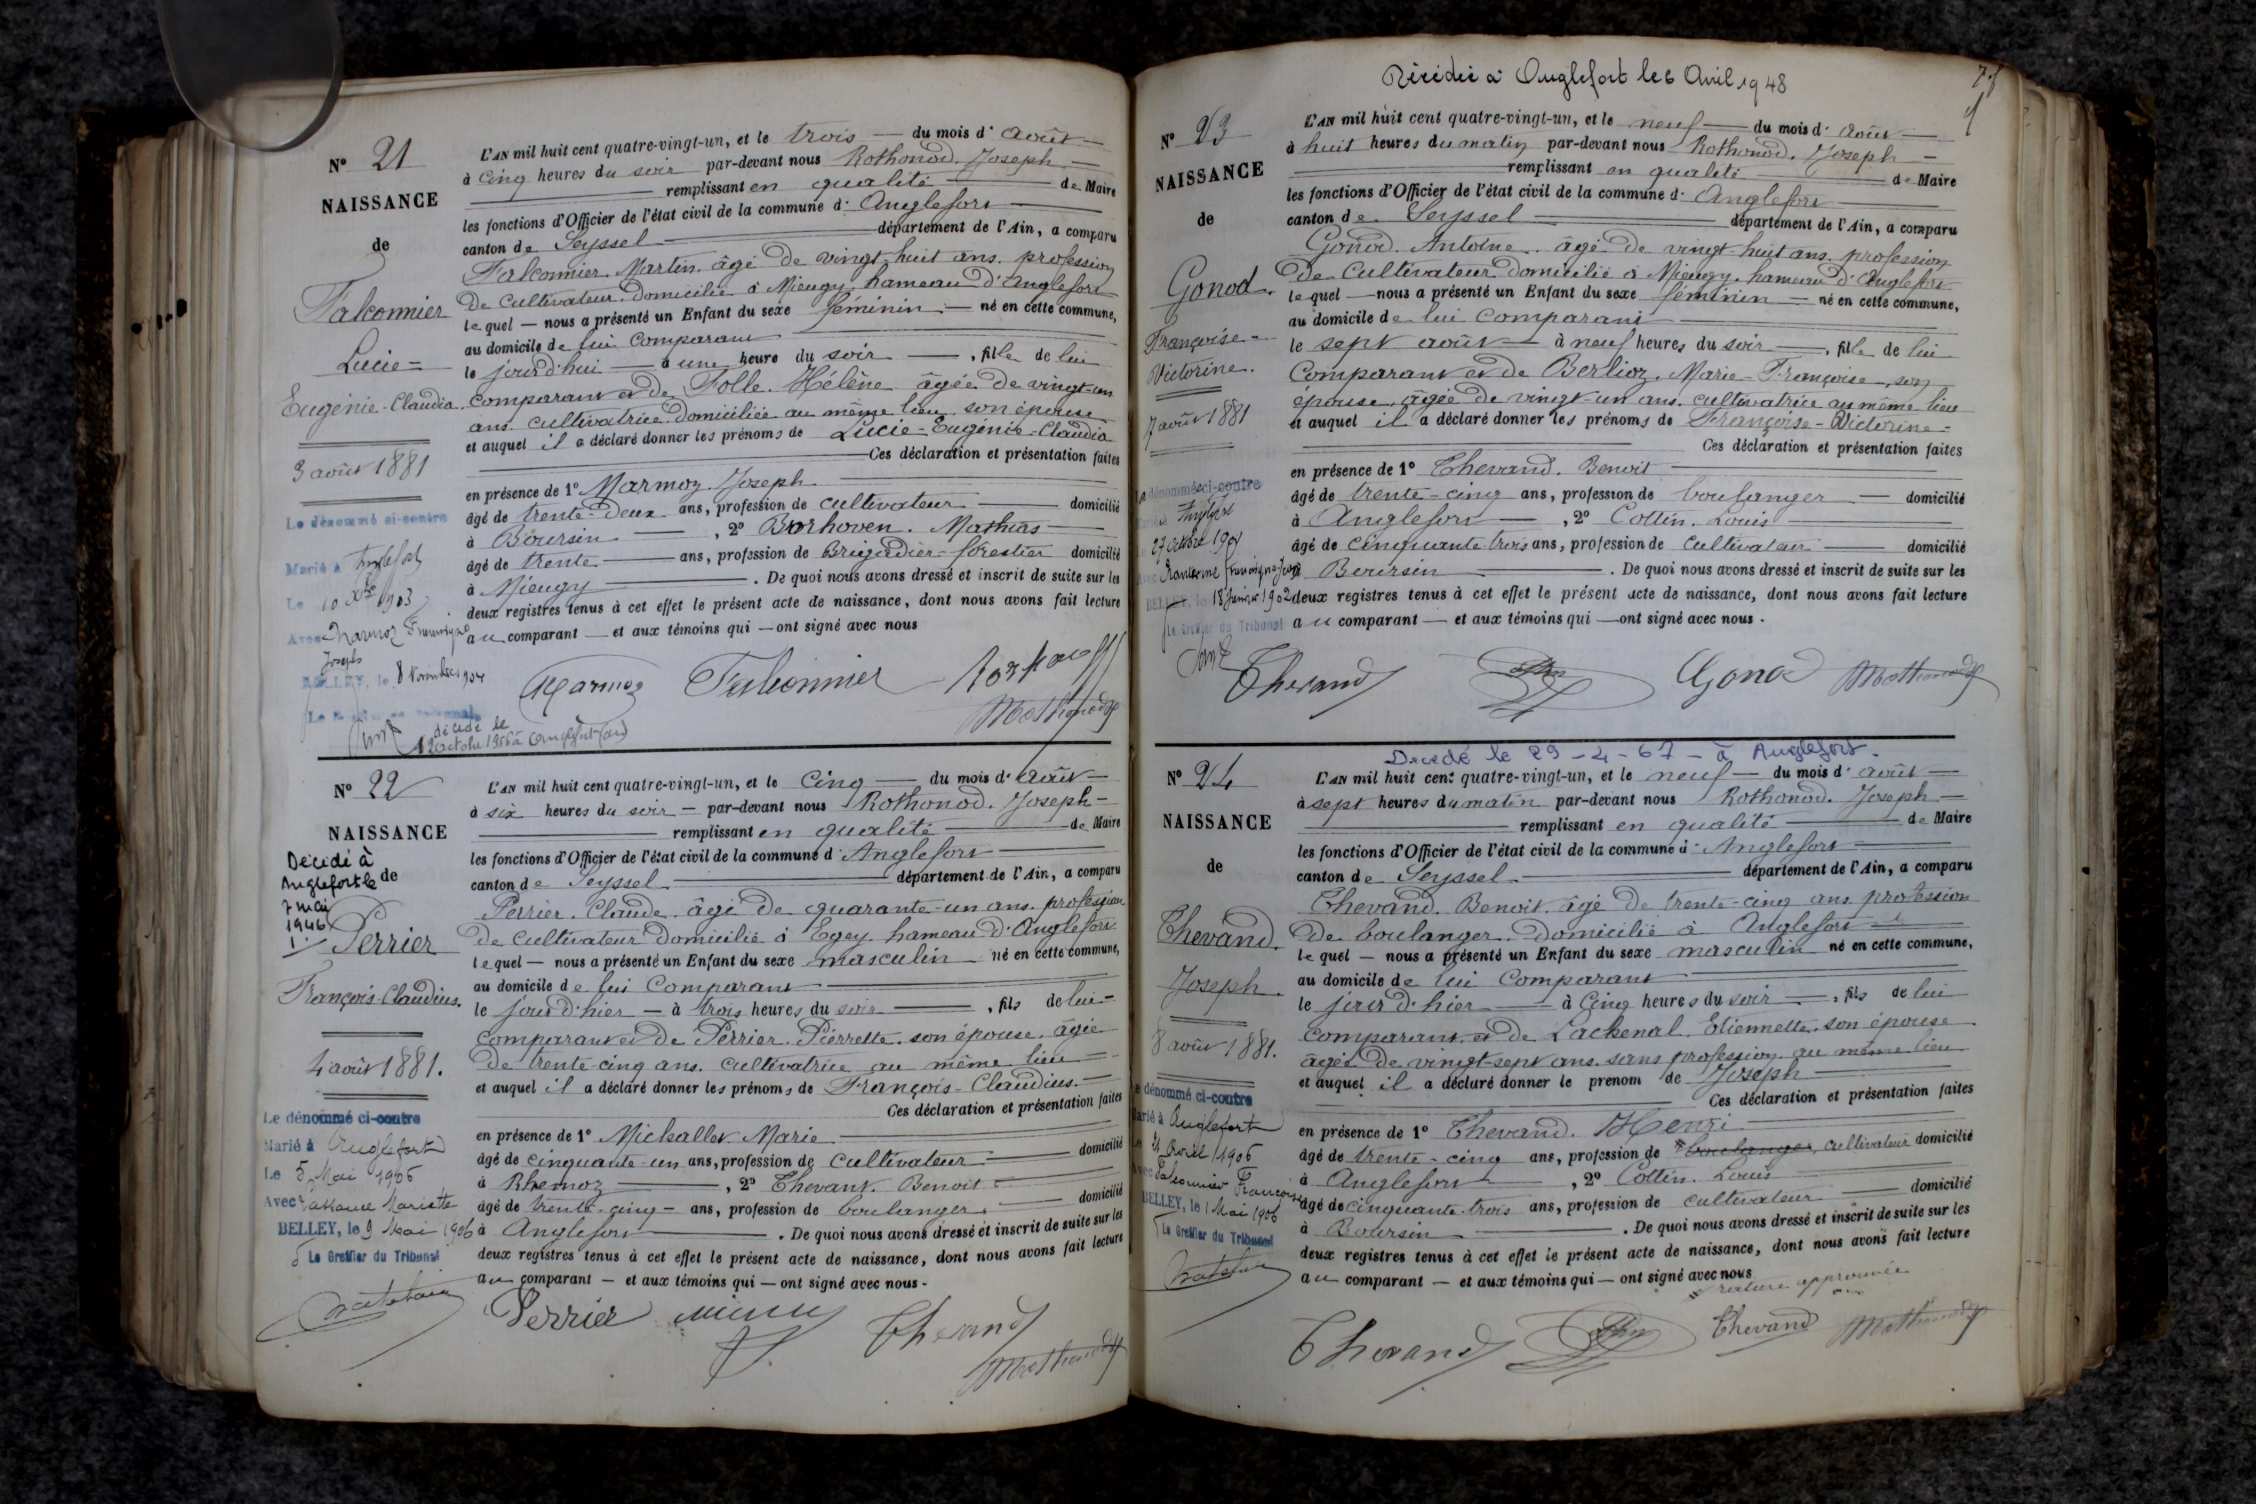 N° 21
NAISSANCE
de
Falconnier
Lucie =
Eugénie-Claudia.
3 août 1881
Le dénommé ci-contre
Marié à Anglefort
Le 10 Xbre 1903
Avec Marmoz
Joseph
BELLEY, le 8 Novembre 1904
décédé le
L'AN mil huit cent quatre-vingt-un, et le trois — du mois d'août —
à cinq heures du soir par-devant nous Rothonod. Joseph —
remplissant en qualité — de Maire
les fonctions d'Officier de l'état civil de la commune d'Anglefort —
canton de Seyssel — département de l'Ain, a comparu
Falconnier Martin. âgé de vingt-huit ans. profession
de cultivateur. domicilié à Mieugy, hameau d'Anglefort
lequel — nous a présenté un Enfant du sexe féminin. — né en cette commune,
au domicile de lui comparant
le jour d'hui — à une heure du soir — , fille de lui
comparant et de Folle. Hélène âgée de vingt-un
ans. cultivatrice. domiciliée au même lieu. son épouse
et auquel il a déclaré donner les prénoms de Lucie-Eugénie-Claudia
— Ces déclaration et présentation faites
en présence de 1° Marmoz. Joseph —
âgé de trente-deux ans, profession de cultivateur — domicilié
à Boursin — , 2° Borhoven. Mathias —
âgé de trente — ans, profession de Brigadier-forestier domicilié
à Mieugy — . De quoi nous avons dressé et inscrit de suite sur les
deux registres tenus à cet effet le présent acte de naissance, dont nous avons fait lecture
au comparant — et aux témoins qui — ont signé avec nous
Marmoz Falconnier
N° 22
NAISSANCE
de
Décédé à
Anglefort le
7 mai
1946
Perrier
François-Claudius.
4 août 1881.
Le dénommé ci-contre
Marié à Anglefort
Le 5 Mai 1906
Avec Mariette
BELLEY, le 9 Mai 1906
Le Greffier du Tribunal
L'AN mil huit cent quatre-vingt-un, et le cinq — du mois d'août —
à six heures du soir — par-devant nous Rothonod. Joseph —
remplissant en qualité — de Maire
les fonctions d'Officier de l'état civil de la commune d'Anglefort —
canton de Seyssel — département de l'Ain, a comparu
Perrier. Claude. âgé de quarante-un ans. profession
de cultivateur domicilié à Egey hameau d'Anglefort
lequel — nous a présenté un Enfant du sexe masculin né en cette commune,
au domicile de lui comparant —
le jour d'hier — à trois heures du soir — , fils de lui =
comparant et de Perrier. Pierrette. son épouse. âgée
de trente-cinq ans. cultivatrice au même lieu —
et auquel il a déclaré donner les prénoms de François-Claudius. —
Ces déclaration et présentation faites
en présence de 1° Michallet Marie —
âgé de cinquante-un ans, profession de cultivateur — domicilié
à Rhemoz — , 2° Thevant. Benoit —
âgé de trente-cinq — ans, profession de boulanger. — domicilié
à Anglefort — . De quoi nous avons dressé et inscrit de suite sur les
deux registres tenus à cet effet le présent acte de naissance, dont nous avons fait lecture
au comparant — et aux témoins qui — ont signé avec nous.
Perrier Thevand
Décédée à Anglefort le 6 Avril 1948
N° 23
NAISSANCE
de
Gonod.
Françoise-
Victorine.
7 août 1881
dénommé ci-contre
27 octobre 1901
BELLEY, le 18 1902
Le Greffier du Tribunal
L'AN mil huit cent quatre-vingt-un, et le neuf — du mois d'août —
à huit heures du matin par-devant nous Rothonod. Joseph —
remplissant en qualité — de Maire
les fonctions d'Officier de l'état civil de la commune d'Anglefort —
canton de Seyssel — département de l'Ain, a comparu
Gonod. Antoine. âgé de vingt-huit ans. profession
de Cultivateur. domicilié à Mieugy. hameau d'Anglefort
lequel — nous a présenté un Enfant du sexe féminin — né en cette commune,
au domicile de lui comparant —
le sept août — à neuf heures du soir — , fille de lui
comparant et de Berlioz. Marie-Françoise, son
épouse, âgée de vingt-un ans. cultivatrice au même lieu
et auquel il a déclaré donner les prénoms de Françoise-Victorine —
Ces déclaration et présentation faites
en présence de 1° Thevand. Benoit —
âgé de trente-cinq ans, profession de boulanger — domicilié
à Anglefort — , 2° Cottin. Louis —
âgé de cinquante-trois ans, profession de cultivateur — domicilié
à Boursin — . De quoi nous avons dressé et inscrit de suite sur les
deux registres tenus à cet effet le présent acte de naissance, dont nous avons fait lecture
au comparant — et aux témoins qui — ont signé avec nous.
Thevand Gonod
Decédé le 29-4-67 - à Anglefort.
N° 24
NAISSANCE
de
Thevand.
Joseph.
8 août 1881.
dénommé ci-contre
Marié à Anglefort
21 Avril 1906
Avec Falconnier Françoise
BELLEY, le 1 Mai 1906
Le Greffier du Tribunal
L'AN mil huit cent quatre-vingt-un, et le neuf — du mois d'août —
à sept heures du matin par-devant nous Rothonod. Joseph —
remplissant en qualité — de Maire
les fonctions d'Officier de l'état civil de la commune d'Anglefort —
canton de Seyssel — département de l'Ain, a comparu
Thevand. Benoit. âgé de trente-cinq ans profession
de boulanger. domicilié à Anglefort —
lequel — nous a présenté un Enfant du sexe masculin né en cette commune,
au domicile de lui comparant —
le jour d'hier — à cinq heures du soir — , fils de lui
comparant et de Lachenal. Etiennette. son épouse
âgée de vingt-sept ans. sans profession. au même lieu
et auquel il a déclaré donner le prénom de Joseph —
Ces déclaration et présentation faites
en présence de 1° Thevand. Henri —
âgé de trente-cinq ans, profession de boulanger, cultivateur domicilié
à Anglefort — , 2° Cottin. Louis —
âgé de cinquante-trois ans, profession de cultivateur — domicilié
à Boursin — . De quoi nous avons dressé et inscrit de suite sur les
deux registres tenus à cet effet le présent acte de naissance, dont nous avons fait lecture
au comparant — et aux témoins qui — ont signé avec nous
rature approuvée
Thevand Thevand